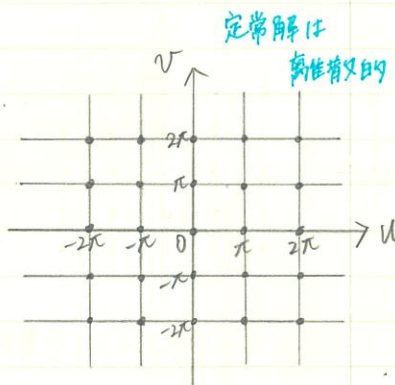 定常解は
離散的
v
2π
π
-2π -π 0 π 2π u
-π
-2π